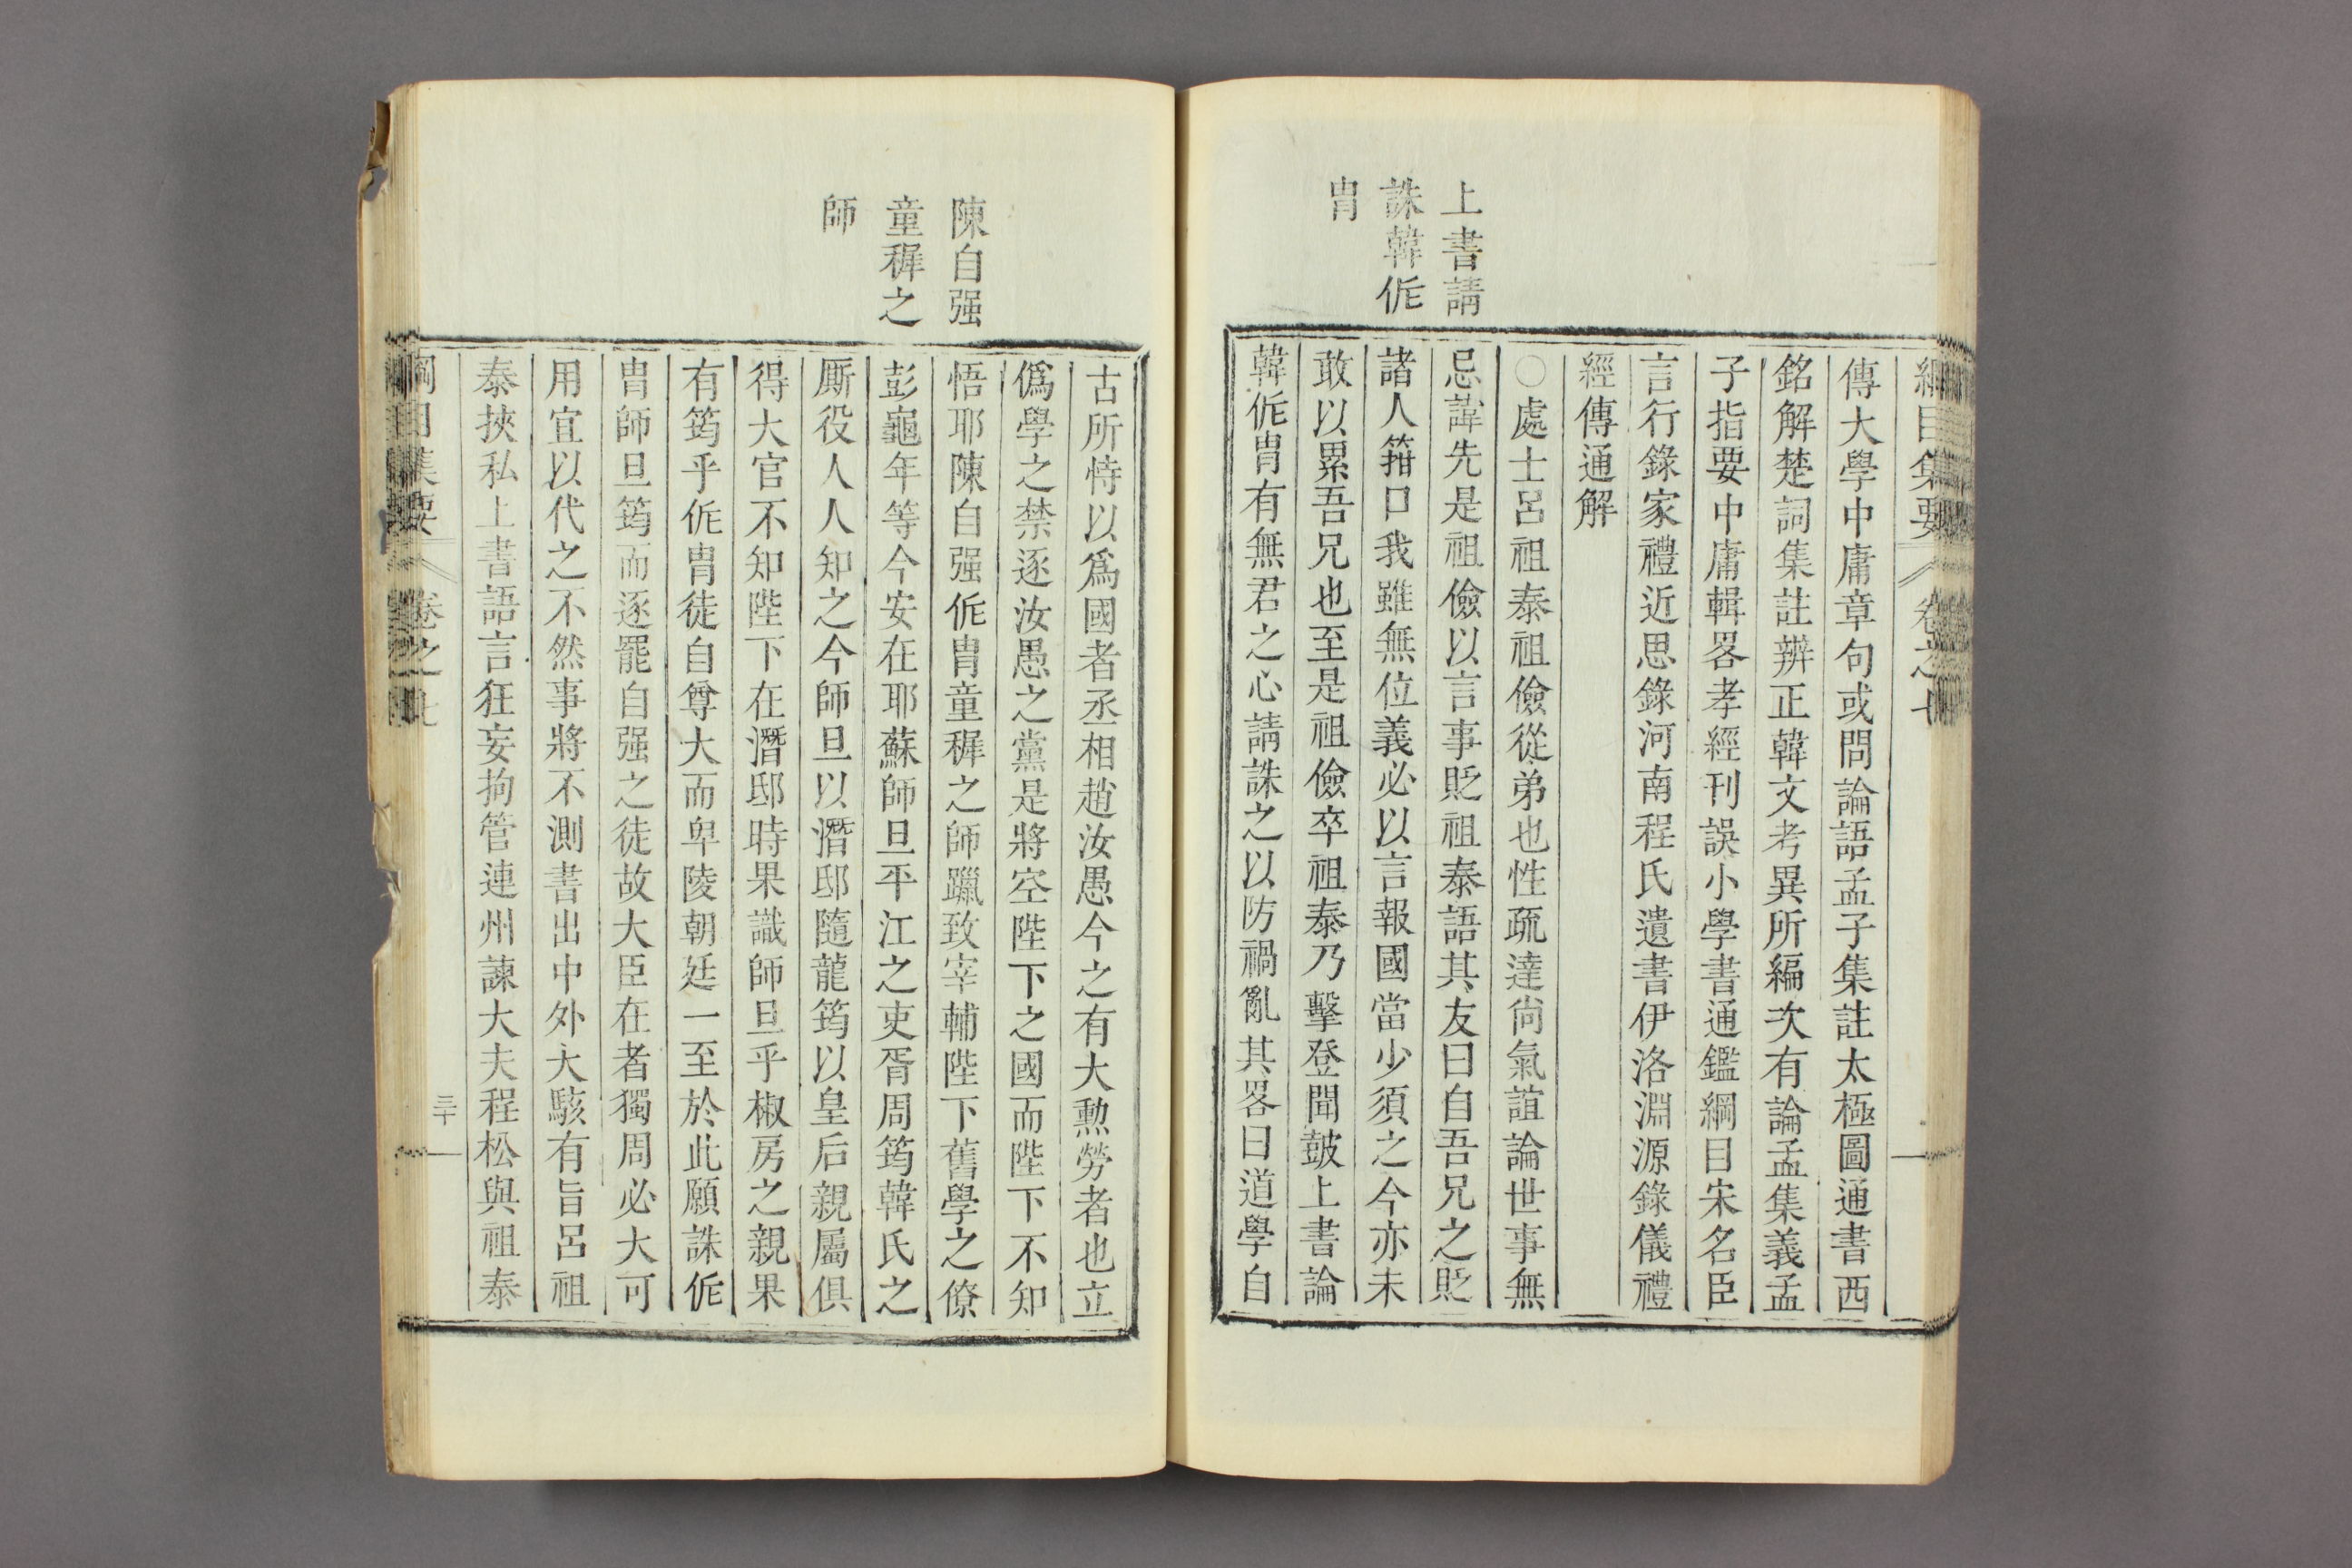 綱目集要 卷之七
傳大學中庸章句或問論語孟子集註太極圖通書西
銘解楚詞集註辨正韓文考異所編次有論孟集義孟
子指要中庸輯畧孝經刊誤小學書通鑑綱目宋名臣
言行錄家禮近思錄河南程氏遺書伊洛淵源錄儀禮
經傳通解
上書請
誅韓侂
冑
○處士呂祖泰祖儉從弟也性疏達尙氣誼論世事無
忌諱先是祖儉以言事貶祖泰語其友曰自吾兄之貶
諸人箝口我雖無位義必以言報國當少須之今亦未
敢以累吾兄也至是祖儉卒祖泰乃擊登聞皷上書論
韓侂冑有無君之心請誅之以防禍亂其畧曰道學自
古所恃以爲國者丞相趙汝愚今之有大勲勞者也立
僞學之禁逐汝愚之黨是將空陛下之國而陛下不知
陳自强
童穉之
師
悟耶陳自强侂冑童穉之師躐致宰輔陛下舊學之僚
彭龜年等今安在耶蘇師旦平江之吏胥周筠韓氏之
厮役人人知之今師旦以潛邸隨龍筠以皇后親屬俱
得大官不知陛下在潛邸時果識師旦乎椒房之親果
有筠乎侂冑徒自尊大而卑陵朝廷一至於此願誅侂
冑師旦筠而逐罷自强之徒故大臣在者獨周必大可
用宜以代之不然事將不測書出中外大駭有旨呂祖
泰挾私上書語言狂妄拘管連州諫大夫程松與祖泰
綱目集要 卷之七 三十